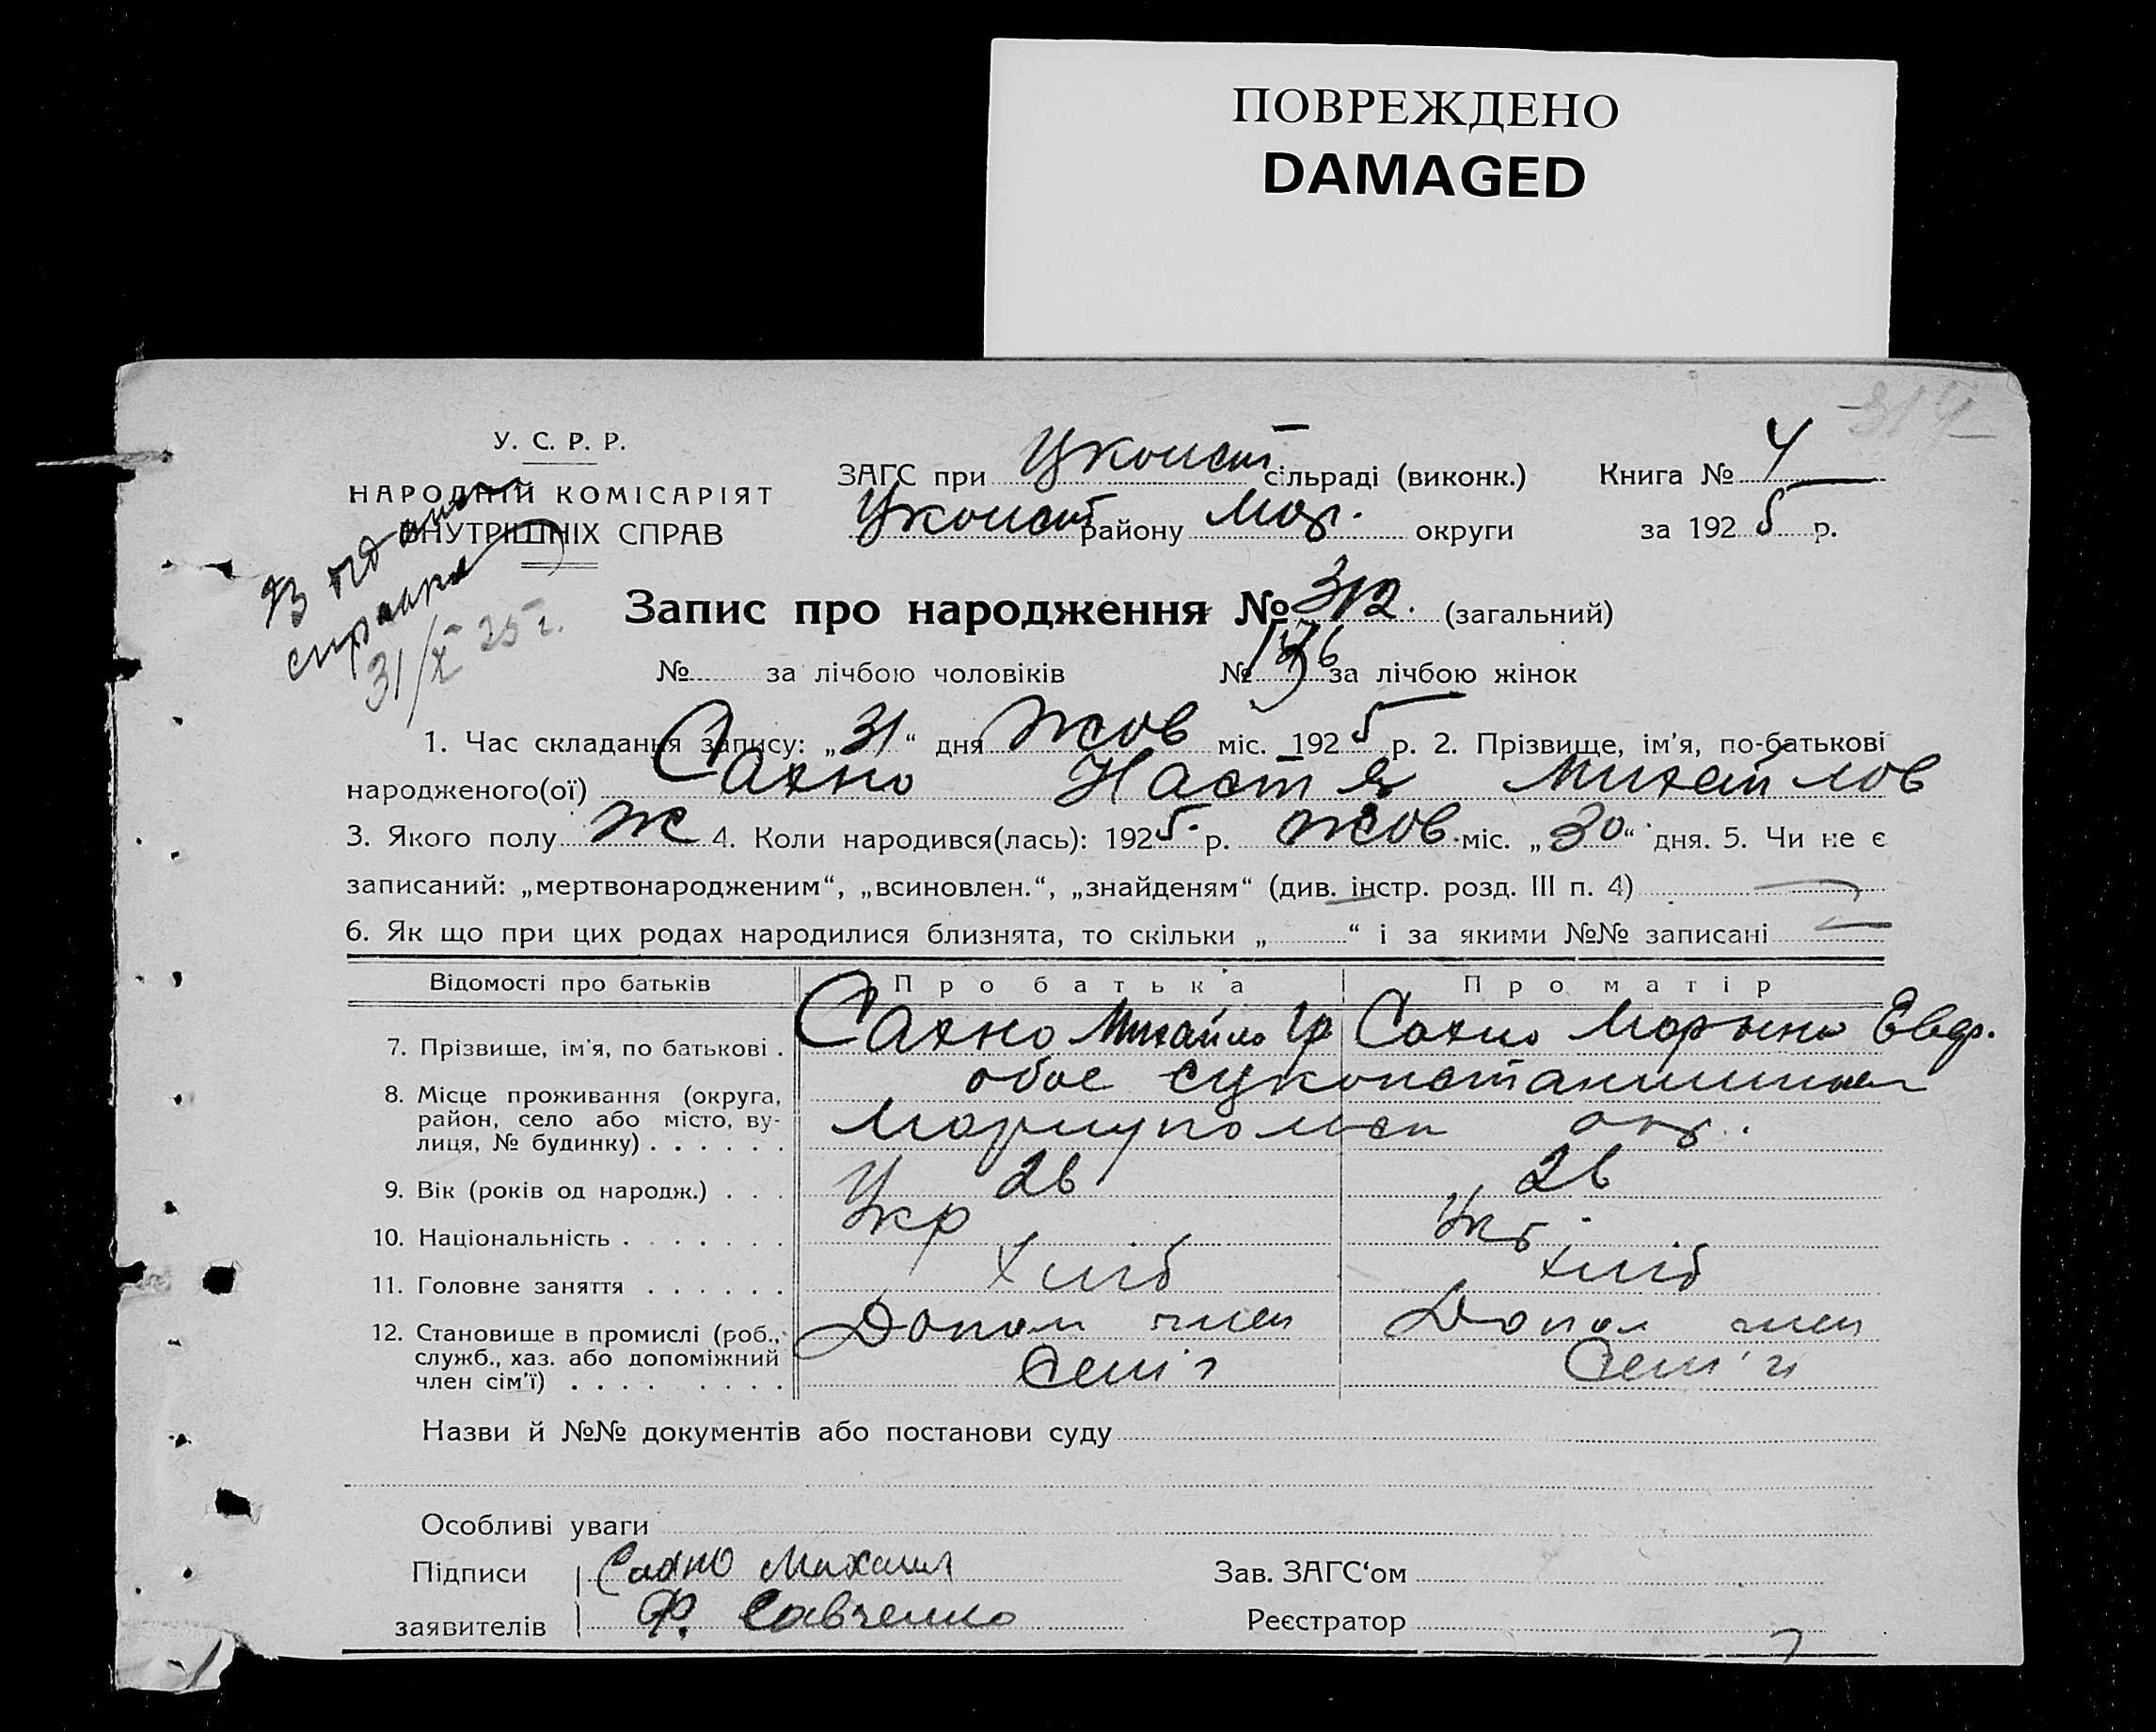 ПОВРЕЖДЕНО
DAMAGED
314
У. С. Р. Р.
НАРОДНІЙ КОМІСАРІЯТ
ВНУТРІШНІХ СПРАВ
ЗАГС при Цконст сільраді (виконк.) Книга № 4
Цконст району Мар. округи за 1925 р.
31/X 25 г.
Запис про народження № 312. (загальний)
№ за лічбою чоловіків № за лічбою жінок
1. Час складання запису: „31“ дня Жов міс. 1925 р. 2. Прізвище, ім'я, по-батькові
народженого(ої) Сахно Настя Михайлов
3. Якого полу Ж 4. Коли народився(лась): 1925. р. Жов. міс. „30“ дня. 5. Чи не є
записаний: „мертвонародженим“, „всиновлен.“, „знайденям“ (див. інстр. розд. III п. 4)
6. Як що при цих родах народилися близнята, то скільки „ “ і за якими №№ записані
Відомості про батьків Про батька Про матір
7. Прізвище, ім'я, по батькові . Сахно Михайло Гр Сахно Марына Евдр.
8. Місце проживання (округа, район, село або місто, вулиця, № будинку) . . . . . . обое
окр.
9. Вік (років од народж.) . . . 26 26
10. Національність . . . . . . . Укр Укр
11. Головне заняття . . . . . . Хліб Хліб
12. Становище в промислі (роб., Допом член Допом член
служб., хаз. або допоміжний Семі'ї Сем'ї
член сім'ї) . . . . . . . .
Назви й №№ документів або постанови суду
Особливі уваги
Підписи Сахно Михаил Зав. ЗАГС'ом
заявителів Ф. Савченко Реєстратор